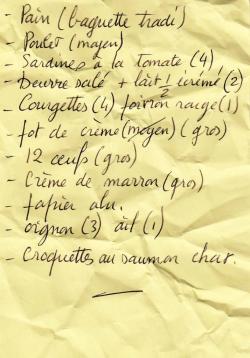 - Pain (baguette tradi)
- Poulet (moyen)
- Sardines à la tomate (4)
- Beurre salé + lait 1/2 écrémé (2)
- Courgettes (4) poivron rouge (1)
- pot de crème (moyen) (gros)
- 12 œufs (gros)
- Crème de marron (gros)
- papier alu.
- oignon (3) ail (1)
- Croquettes au saumon chat.